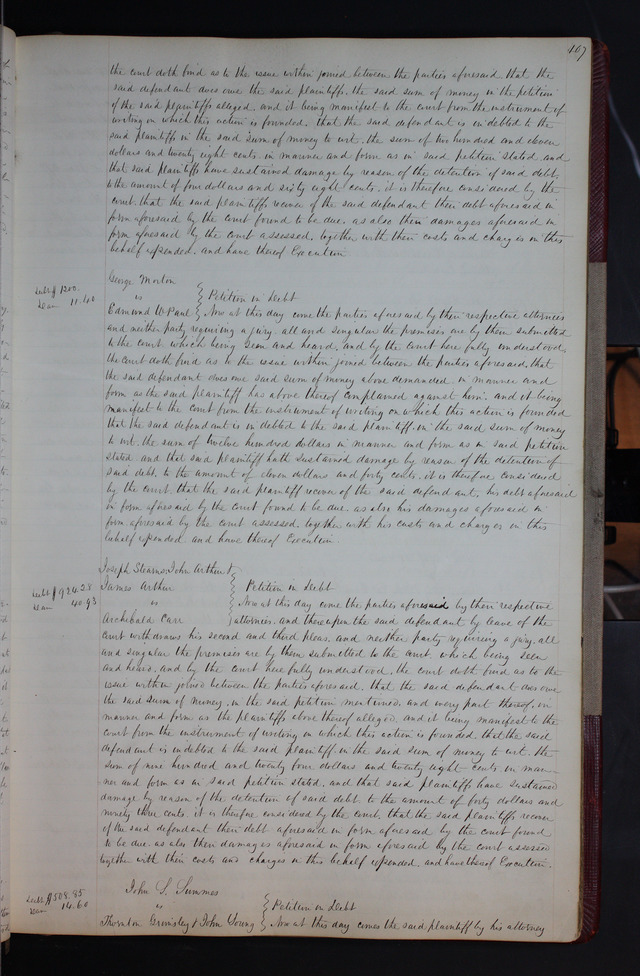 107
the court doth find as to the issue within joined between the parties aforesaid that the
said defendant does owe the said plaintiffs, the said sum of money in the petition
of the said plaintiffs alleged, and it being manifest to the court from the instrument of
writing on which this action is founded, that the said defendant is indebted to the
said plaintiffs in the said sum of money to wit, the sum of two hundred and eleven
dollars and twenty eight cents, in manner and form as in said petition stated, and
that said plaintiffs have sustained damage by reason of the detention of said debt,
to the amount of four dollars and sixty eight cents, it is therefore considered by the
court, that the said plaintiffs recover of the said defendant their debt aforesaid in
form aforesaid by the court found to be due, as also their damages aforesaid in
form aforesaid by the court assessed, together with their costs and charges in this
behalf expended, and have thereof Execution
George Morton
Debt $1200.
vs Petition in Debt
Dam 11.40
Edmund W Paul Now at this day come the parties aforesaid by their respective attornies
and neither party requiring a jury, all and singular the premises are by them submitted
to the court which being seen and heard, and by the court here fully understood,
the court doth find as to the issue within joined between the parties aforesaid, that
the said defendant owes one said sum of money above demanded in manner and
form as the said plaintiff has above thereof complained against him, and it being
manifest to the court from the instrument of writing on which this action is founded
that the said defendant is indebted to the said plaintiff in the said sum of money
to wit, the sum of twelve hundred dollars in manner and form as in said petition
stated and that said plaintiff hath sustained damage by reason of the detention of
said debt, to the amount of eleven dollars and forty cents, it is therefore considered
by the court that the said plaintiff recover of the said defendant, his debt aforesaid
in form aforesaid by the court found to be due as also his damages aforesaid in
form aforesaid by the court assessed, together with his costs and charges in this
behalf expended, and have thereof Execution.
Joseph Stearns, John Arthur &
Debt $924.28 James Arthur Petition in Debt
Dam 40.93 vs Now at this day come the parties aforesaid by their respective
Archibald Carr attornies, and thereupon the said defendant by leave of the
court withdraws his second and third pleas, and neither party requiring a jury, all
and singular the premises are by them submitted to the court, which being seen
and heard, and by the court here fully understood, the court doth find as to the
issue within joined between the parties aforesaid, that the said defendant does owe
the said sum of money, in the said petition mentioned, and every part thereof, in
manner and form as the plaintiffs above thereof allegd, and it being manifest to the
court from the instrument of writing on which this action is founded that the said
defendant is indebted to the said plaintiff in the said sum of money to wit, the
sum of nine hundred and twenty four dollars and twenty eight cents in man-
ner and form as in said petition stated, and that said plaintiffs have sustained
damage by reason of the detention of said debt to the amount of forty dollars and
ninety three cents, it is therefore considered by the court, that the said plaintiffs recover
of the said defendant their debt aforesaid in form aforesaid by the court found
to be due as also their damages aforesaid in form aforesaid by the court assessed
together with their costs and charges in this behalf expended, and have thereof Execution.
John S. Simmes
Debt $508.85
" Petition in Debt
Dam 14.60
Thornton Grimsley & John Young Now at this day comes the said plaintiff by his attorney